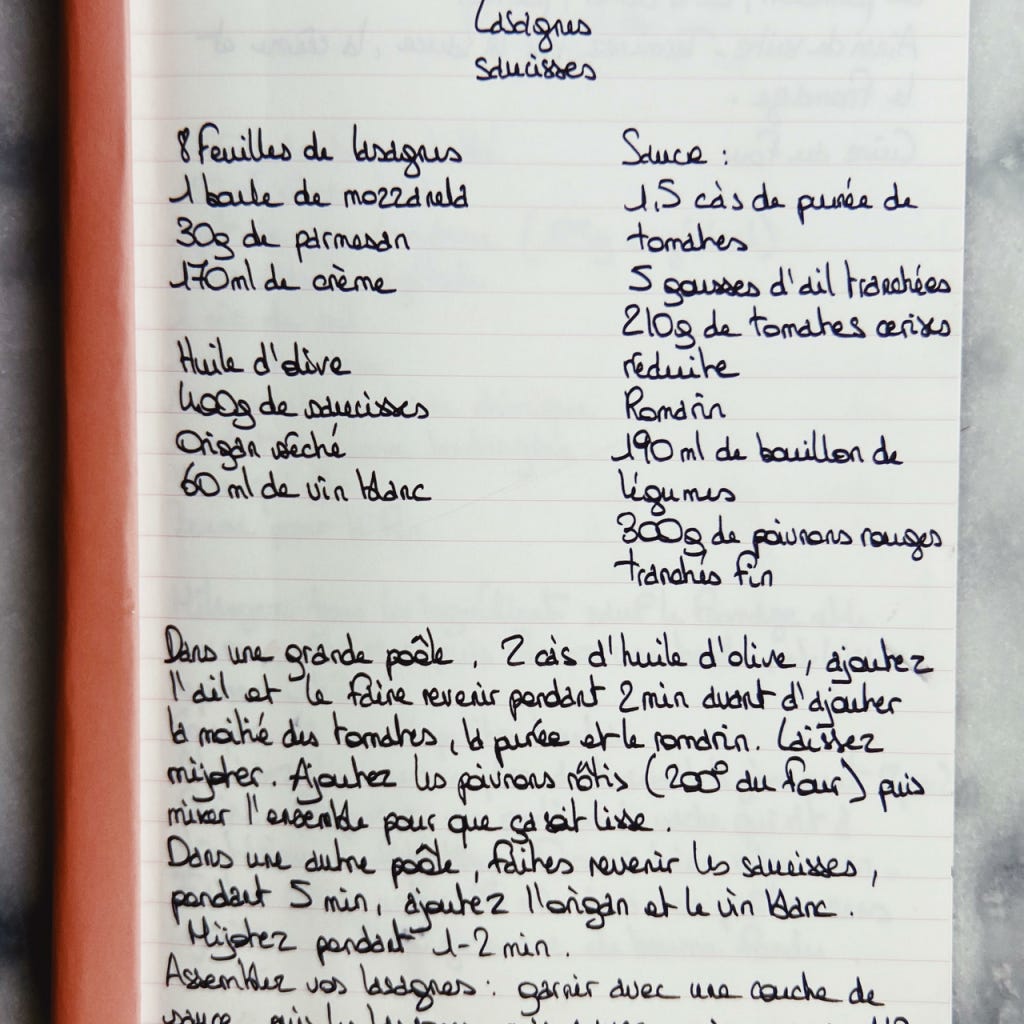 Lasagnes
saucisses
8 feuilles de lasagnes
1 boule de mozzarella
30g de parmesan
170ml de crème
Huile d'olive
400g de saucisses
Origan séché
60 ml de vin blanc
Sauce :
1,5 càs de purée de
tomates
5 gousses d'ail tranchées
210g de tomates cerises
réduite
Romarin
190 ml de bouillon de
légumes
300g de poivrons rouges
tranchés fin
Dans une grande poêle, 2 càs d'huile d'olive, ajoutez
l'ail et le faire revenir pendant 2 min avant d'ajouter
la moitié des tomates, la purée et le romarin. Laissez
mijoter. Ajoutez les poivrons rôtis (200° du four) puis
mixer l'ensemble pour que ça soit lisse.
Dans une autre poêle, faites revenir les saucisses,
pendant 5 min, ajoutez l'origan et le vin blanc.
Mijotez pendant 1-2 min.
Assemblez vos lasagnes : garnir avec une couche de
sauce, puis